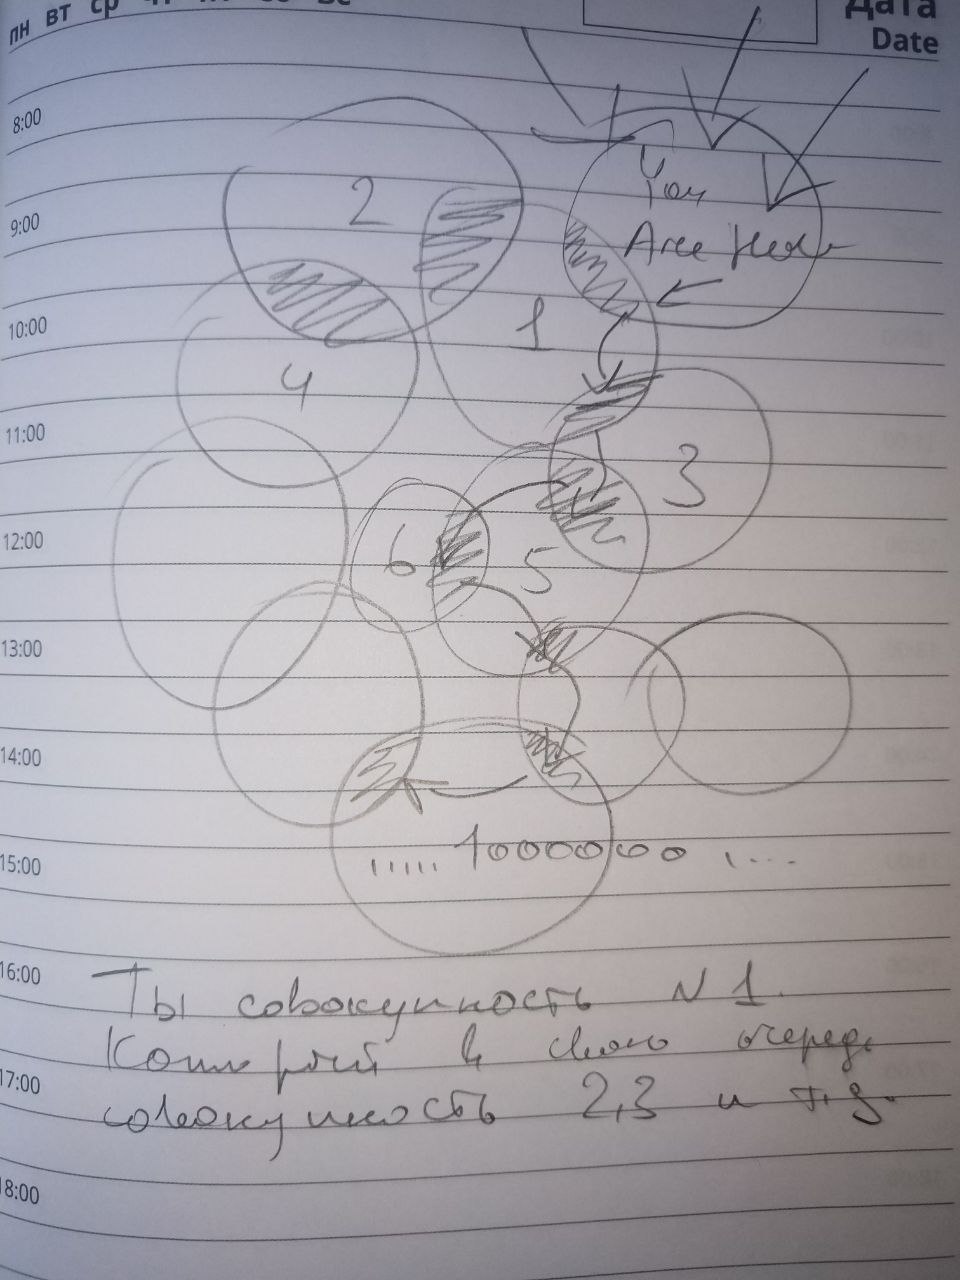 пн вт ср
Дата
Date
8:00
9:00
10:00
11:00
12:00
13:00
14:00
15:00
16:00
17:00
18:00
2
You
Are Here
1
4
3
6
5
..... 1000000 ....
Ты совокупность N 1.
Который в свою очередь
совокупность 2,3 и т.д.